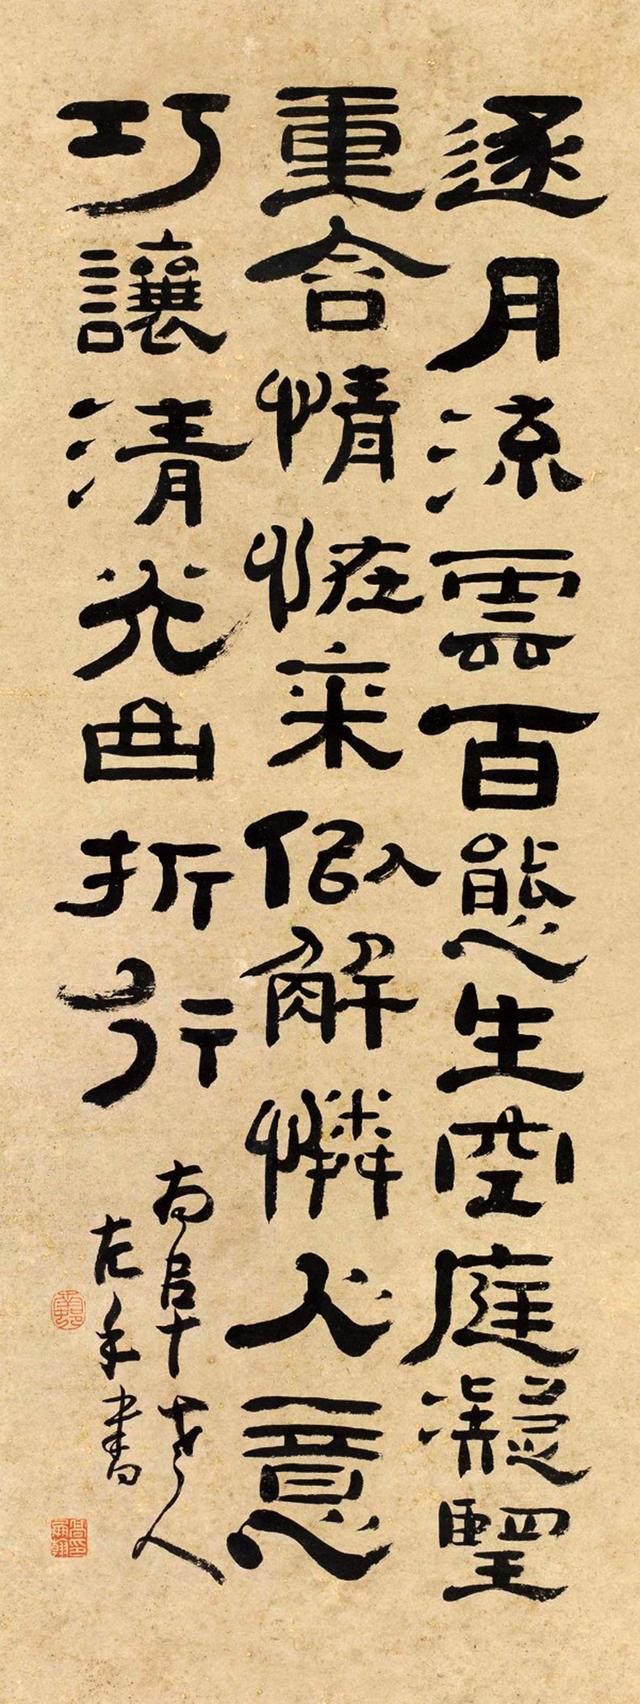 逐月流雲百態生空庭凝朢
重含情恠來似解憐人意
巧讓清光曲折行
南阜老人
左手書